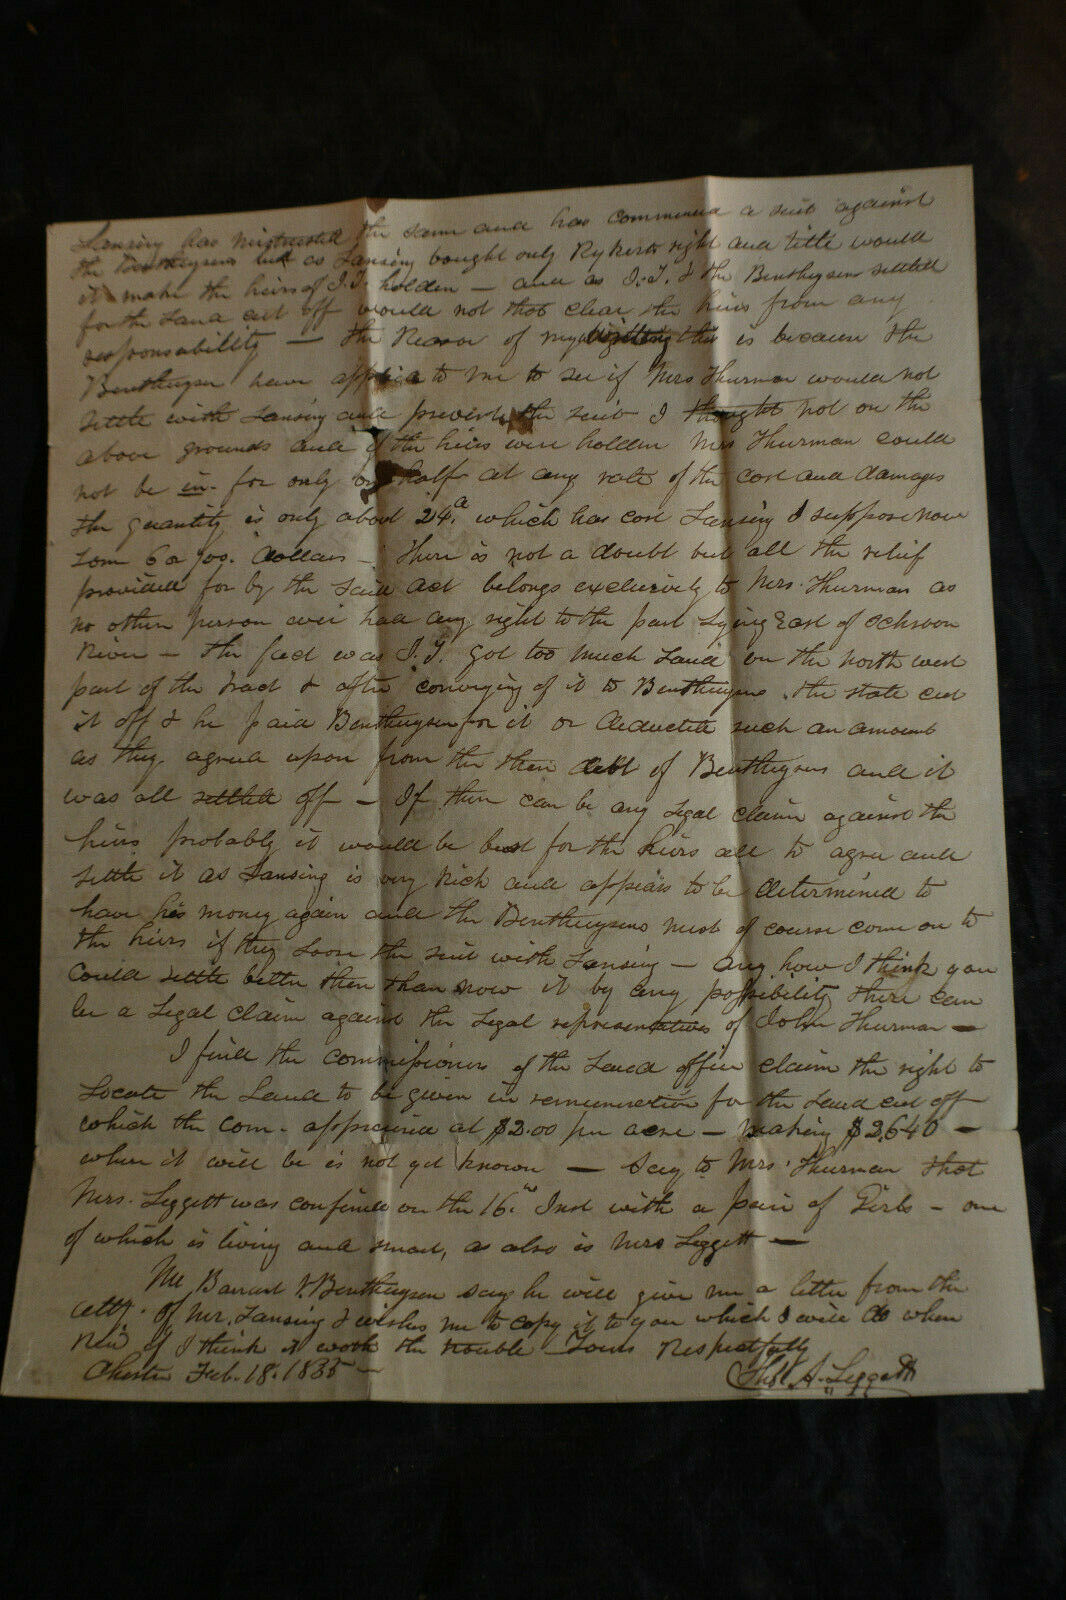 Lansing has the same and has commenced a suit against
the Benthuysens but as Lansing bought only Rykerts right and title would
it make the heirs of J.T. holden — and as J.T. & the Benthuysens settled
for the Land cut off would not that clear the heirs from any
responsibility — the Reason of my writing this is because the
Benthuysen have to me to see if Mrs Thurman would not
settle with Lansing and prevent the suit I thought not on the
above grounds and if the heirs were holden Mrs Thurman could
not be in for only one half at any rate of the cost and damages
the quantity is only about 24.a which has cost Lansing I suppose now
som 6 or 700. dollars — There is not a doubt but all the relief
provided for by the said act belongs exclusively to Mrs. Thurman as
no other person ever had any right to the part Lying East of Schroon
River — the fact was J.T. got too much Land on the north west
part of the tract & after conveying of it to Benthuysens the state cut
it off & he paid Benthuysen for it or deducted such an amount
as they agreed upon from the then debt of Benthuysens and it
was all settled off — If there can be any Legal claim against the
heirs probably it would be best for the heirs all to agree and
settle it as Lansing is very Rich and appears to be determined to
have his money again and the Benthuysens must of course come on to
the heirs if they Loose the suit with Lansing — any how I think you
could settle better then than now it by any possibility there can
be a Legal claim against the Legal representatives of John Thurman —
I find the commissioners of the Land office claim the right to
Locate the Land to be given in remuneration for the Land cut off
which the Com. appraised at $2.00 per acre — making $2,640 —
when it will be is not yet known — Say to Mrs. Thurman that
Mrs. Leggett was confined on the 16. Inst with a pair of Girls — one
of which is living and smart, as also is Mrs Leggett —
Mr Barrant V. Benthuysen says he will give me a letter from the
atty. of Mr. Lansing & wishes me to copy it to you which I will do when
Recd if I think it worth the trouble Yours Respectfully
Chester Feb. 18. 1835 — Thos. A. Leggett